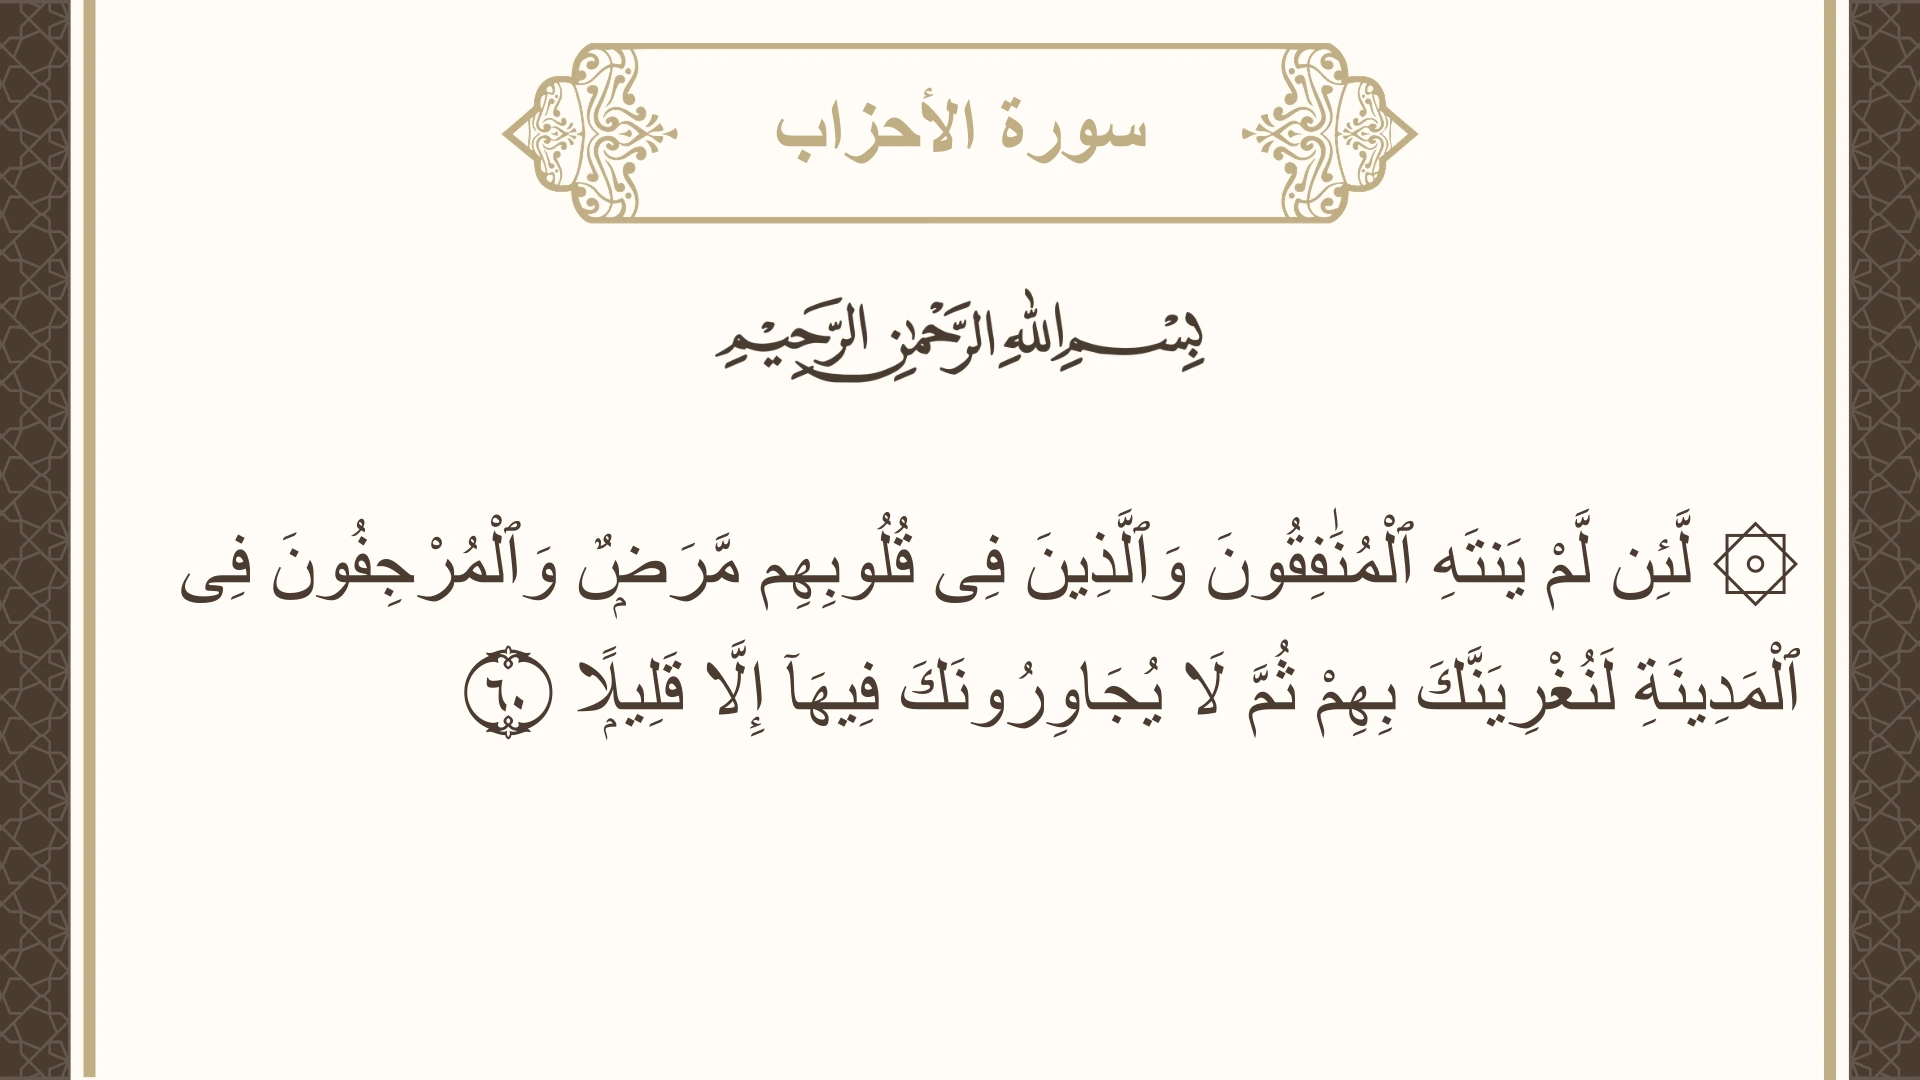 سورة الأحزاب
بِسْمِ اللهِ الرَّحْمٰنِ الرَّحِيْمِ
۞ لَّئِن لَّمْ يَنتَهِ ٱلْمُنَٰفِقُونَ وَٱلَّذِينَ فِى قُلُوبِهِم مَّرَضٌۭ وَٱلْمُرْجِفُونَ فِى
ٱلْمَدِينَةِ لَنُغْرِيَنَّكَ بِهِمْ ثُمَّ لَا يُجَاوِرُونَكَ فِيهَآ إِلَّا قَلِيلًۭا ٦٠